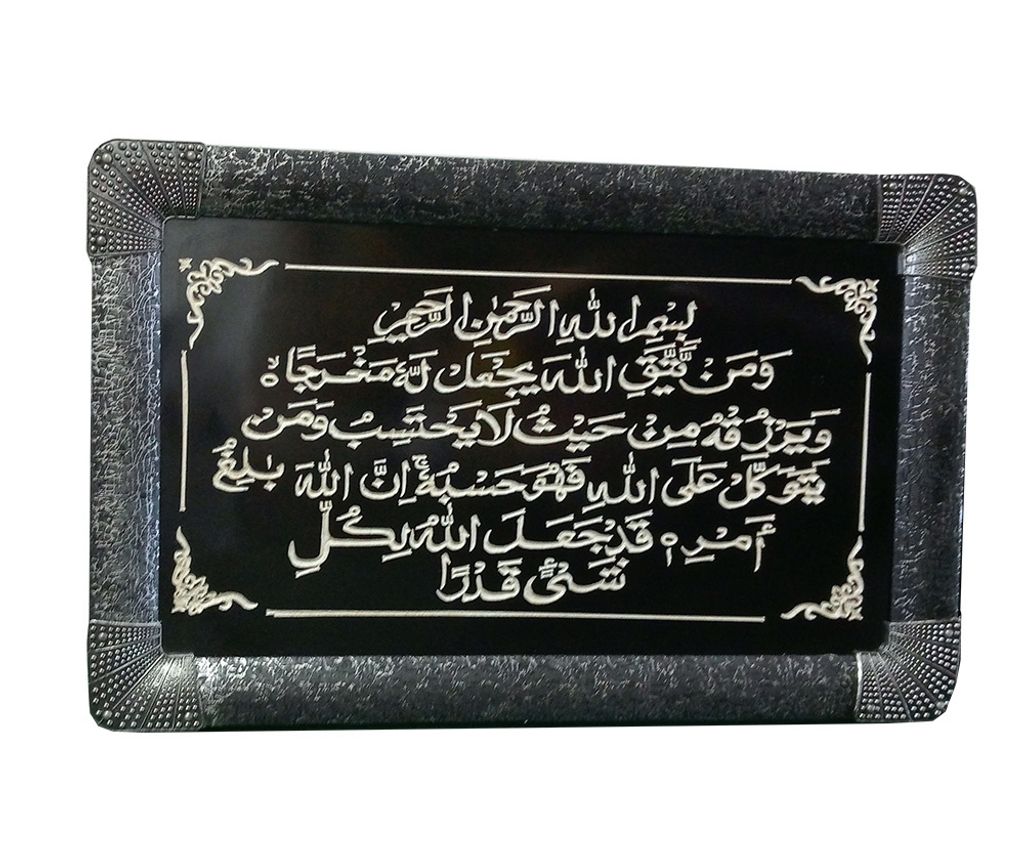 بِسْمِ اللهِ الرَّحْمٰنِ الرَّحِيْمِ
وَمَنْ يَّتَّقِ اللهَ يَجْعَلْ لَّهٗ مَخْرَجًا ۙ
وَيَرْزُقْهُ مِنْ حَيْثُ لَا يَحْتَسِبُ وَمَنْ
يَّتَوَكَّلْ عَلَى اللهِ فَهُوَ حَسْبُهٗ ۚ اِنَّ اللهَ بَالِغُ
اَمْرِهٖ قَدْ جَعَلَ اللهُ لِكُلِّ
شَىْءٍ قَدْرًا